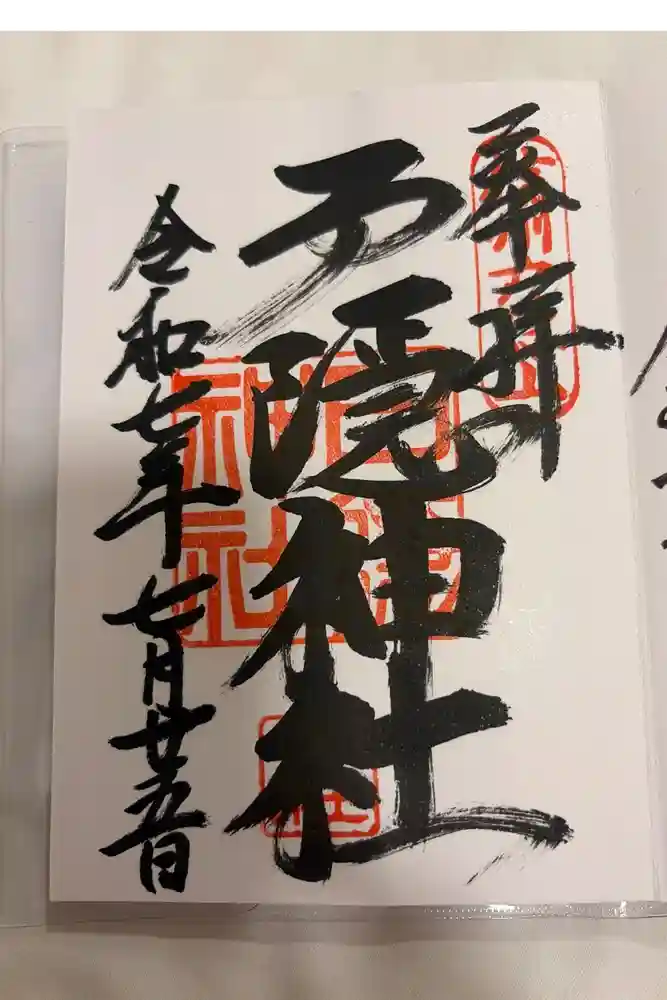 奉拝
戸隠神社
令和七年七月廿五日
神社